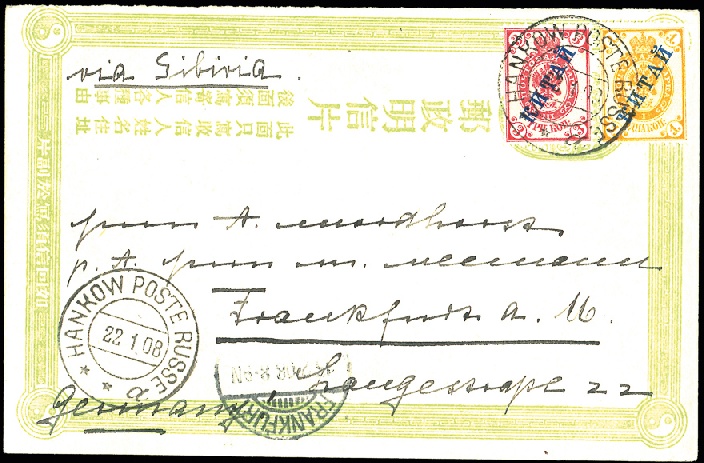 via Sibiria.
HANKOW POSTE RUSSE
a
КИТАЙ
КИТАЙ
郵政明信片
此面只寫收信人姓名住址
Herrn A. Mordhorst
p. A. Herrn M. Meemann
Frankfurt a. M.
Langestraße 22
Germany
HANKOW POSTE RUSSE
22 1 08
a
FRANKFURT